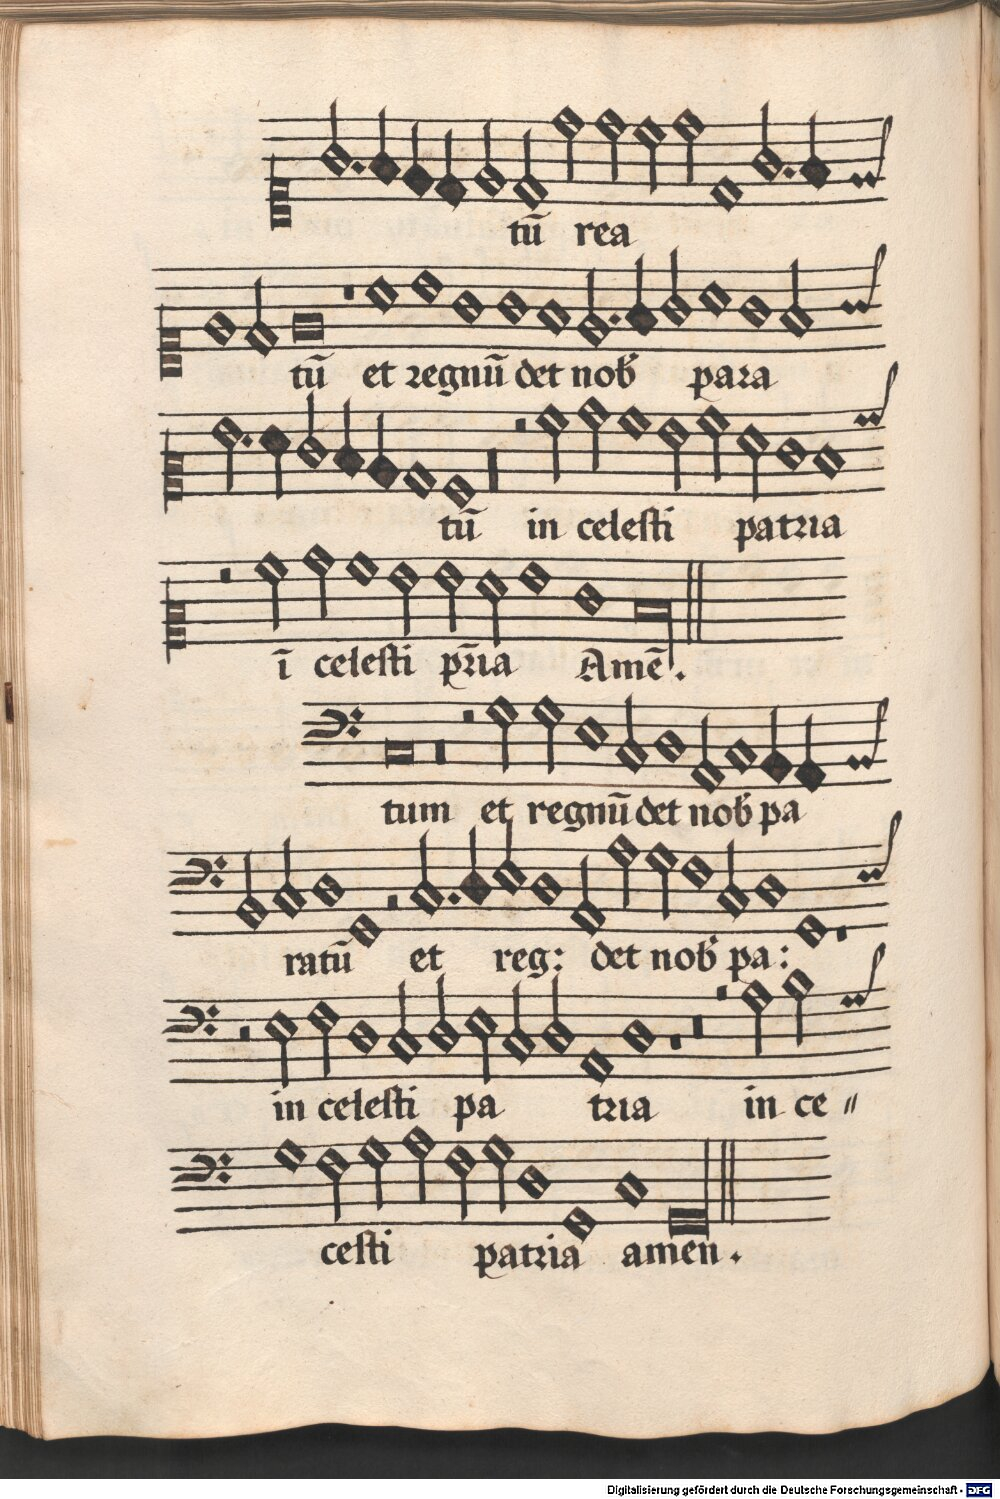 tū rea
tū et regnū det nob̄ para
tū in celesti patria
ī celesti pr̄ia Amē.
tum et regnū det nob̄ pa
ratū et reg: det nob̄ pa:
in celesti pa tria in ce〃
cesti patria amen.
Digitalisierung gefördert durch die Deutsche Forschungsgemeinschaft - DFG